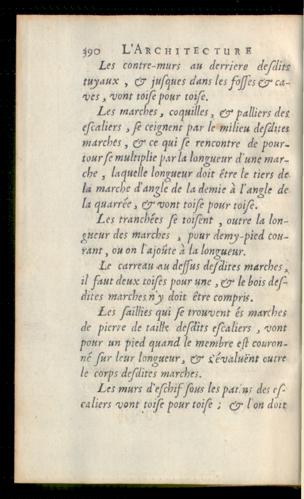 390 L'ARCHITECTURE
Les contre-murs au derriere desdits
tuyaux, & jusques dans les fosses & ca-
ves, vont toise pour toise.
Les marches, coquilles, & palliers des
escaliers, se ceignent par le milieu desdites
marches, & ce qui se rencontre de pour-
tour se multiplie par la longueur d'une mar-
che, laquelle longueur doit être le tiers de
la marche d'angle de la demie à l'angle de
la quarrée, & vont toise pour toise.
Les tranchées se toisent, outre la lon-
gueur des marches, pour demy-pied cou-
rant, ou on l'ajoûte à la longueur.
Le carreau au dessus desdites marches,
il faut deux toises pour une, & le bois des-
dites marches n'y doit être compris.
Les saillies qui se trouvent és marches
de pierre de taille desdits escaliers, vont
pour un pied quand le membre est couron-
né sur leur longueur, & s'évaluënt outre
le corps desdites marches.
Les murs d'eschif sous les patins des es-
caliers vont toise pour toise; & l'on doit